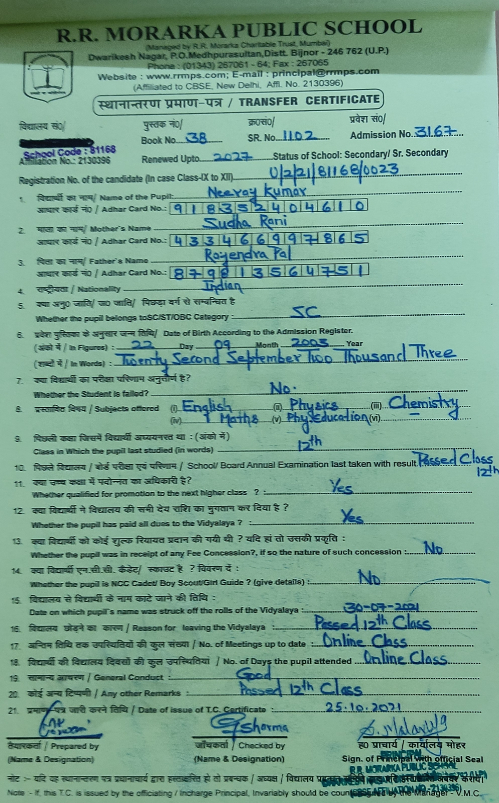 R.R. MORARKA PUBLIC SCHOOL
(Managed by R.R. Morarka Charitable Trust, Mumbai)
Dwarikesh Nagar, P.O.Medhpurasultan, Distt. Bijnor - 246 762 (U.P.)
Phone : (01343) 267061 - 64; Fax : 267065
Website : www.rrmps.com; E-mail : principal@rrmps.com
(Affiliated to CBSE, New Delhi, Affl. No. 2130396)
स्थानान्तरण प्रमाण-पत्र / TRANSFER CERTIFICATE
विद्यालय सं०/ पुस्तक नं०/ क्र०सं०/ प्रवेश सं०/
Book No. 38 SR. No. 1102 Admission No. 3167
School Code : 81168
Affiliation No.: 2130396 Renewed Upto 2027 Status of School: Secondary/ Sr. Secondary
Registration No. of the candidate (in case Class-IX to XII) U/2/21/81168/0023
1. विद्यार्थी का नाम/ Name of the Pupil: Neeraj Kumar
आधार कार्ड नं० / Adhar Card No.: 918352404610
2. माता का नाम/ Mother's Name Sudha Rani
आधार कार्ड नं० / Adhar Card No.: 433466997865
3. पिता का नाम/ Father's Name Rajendra Pal
आधार कार्ड नं० / Adhar Card No.: 879813564751
4. राष्ट्रीयता / Nationality Indian
5. क्या अनु० जाति/ ज० जाति/ पिछड़ा वर्ग से सम्बन्धित है
Whether the pupil belongs toSC/ST/OBC Category : SC
6. प्रवेश पुस्तिका के अनुसार जन्म तिथि/ Date of Birth According to the Admission Register.
(अंको में / In Figures) : 22 Day 09 Month 2003 Year
(शब्दों में / In Words) : Twenty Second September Two Thousand Three
7. क्या विद्यार्थी का परीक्षा परिणाम अनुतीर्ण है?
Whether the Student is failed? No.
8. प्रस्तावित विषय / Subjects offered (i) English (ii) Physics (iii) Chemistry
(iv) Maths (v) Phy.Education (vi)
9. पिछली कक्षा जिसमें विद्यार्थी अध्ययनरत था : (अंको में)
Class in Which the pupil last studied (in words) 12th
10. पिछले विद्यालय / बोर्ड परीक्षा एवं परिणाम / School/ Board Annual Examination last taken with result Passed Class 12th
11. क्या उच्च कक्षा में पदोन्नत का अधिकारी है?
Whether qualified for promotion to the next higher class ? : Yes
12. क्या विद्यार्थी ने विद्यालय की सभी देय राशि का भुगतान कर दिया है ?
Whether the pupil has paid all dues to the Vidyalaya ? : Yes
13. क्या विद्यार्थी को कोई शुल्क रियायत प्रदान की गयी थी ? यदि हां तो उसकी प्रकृति :
Whether the pupil was in receipt of any Fee Concession?, if so the nature of such concession : No
14. क्या विद्यार्थी एन.सी.सी. कैडेट/ स्काउट है ? विवरण दें :
Whether the pupil is NCC Cadet/ Boy Scout/Girl Guide ? (give details) : No
15. विद्यालय से विद्यार्थी के नाम काटे जाने की तिथि :
Date on which pupil's name was struck off the rolls of the Vidyalaya : 30-07-2021
16. विद्यालय छोड़ने का कारण / Reason for leaving the Vidyalaya : Passed 12th Class
17. अन्तिम तिथि तक उपस्थितियों की कुल संख्या / No. of Meetings up to date : Online Class
18. विद्यार्थी की विद्यालय दिवसों की कुल उपस्थितियां / No. of Days the pupil attended Online Class
19. सामान्य आचरण / General Conduct : Good
20. कोई अन्य टिप्पणी / Any other Remarks : Passed 12th Class
21. प्रमाण पत्र जारी करने तिथि / Date of issue of T.C. Certificate 25.10.2021
Sharma
तैयारकर्ता / Prepared by जाँचकर्ता / Checked by ह० प्राचार्य / कार्यालय मोहर
(Name & Designation) (Name & Designation) Sign. of Principal with official Seal
PRINCIPAL
R.R MORARKA PUBLIC SCHOOL
CBSE AFFILIATION NO.-2130396)
नोट :- यदि यह स्थानान्तरण पत्र प्रधानाचार्य द्वारा हस्ताक्षरित हो तो प्रबन्धक / अध्यक्ष / विद्यालय
Note - If, this T.C. is issued by the officating / Incharge Principal, Invariably should be countersigned by the Manager - V.M.C.